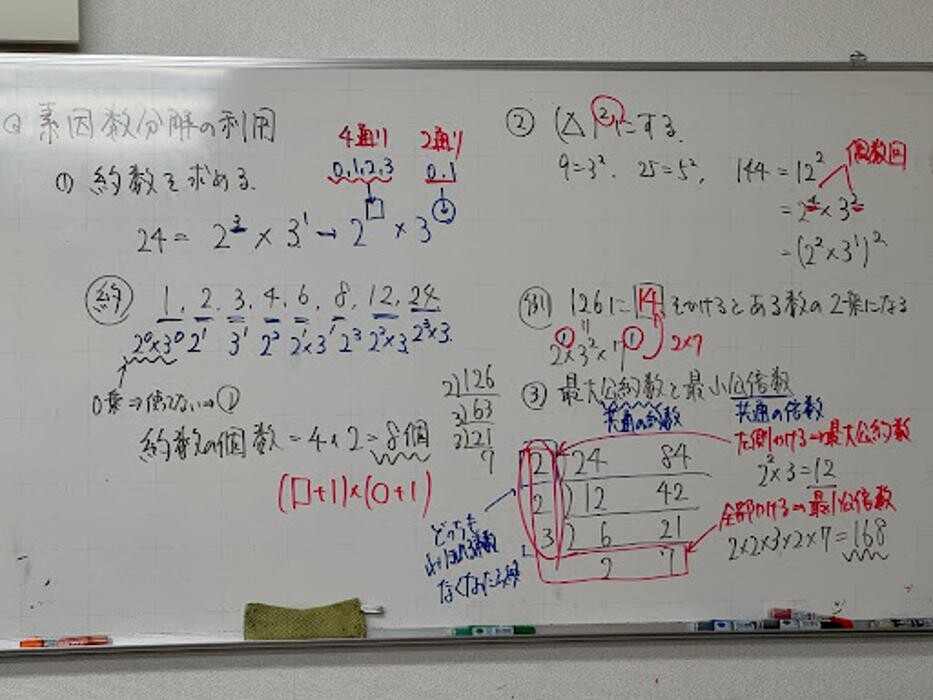 素因数分解の利用
① 約数を求める.
4通り 2通り
0,1,2,3 0,1
24 = 2³ × 3¹ → 2□ × 3○
約 1, 2, 3, 4, 6, 8, 12, 24
2⁰×3⁰ 2¹ 3¹ 2² 2¹×3¹ 2³ 2²×3 2³×3
0乗⇒使わない⇒①
約数の個数 = 4 × 2 = 8個
(□+1)×(○+1)
② (△)²にする.
9=3². 25=5², 144 = 12²
偶数回
= 2⁴ × 3²
= (2² × 3¹)²
例 126に 14 をかけるとある数の2乗になる
2×3²×7 2×7
2)126
3)63
3)21
7
③ 最大公約数と最小公倍数
共通の約数 共通の倍数
左側かける⇒最大公約数
2² × 3 = 12
2 ) 24 84
2 ) 12 42
3 ) 6 21
2 7
全部かける⇒最小公倍数
2×2×3×2×7 = 168
どっちも
なくなったら終